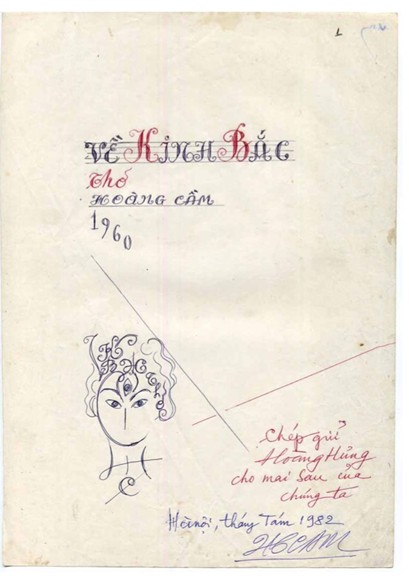 VỀ KINH BẮC
Thơ
HOÀNG CẦM
1960
Chép gửi
Hoàng Hưng
cho mai sau của
chúng ta
Hà nội, tháng Tám 1982
HGCAM